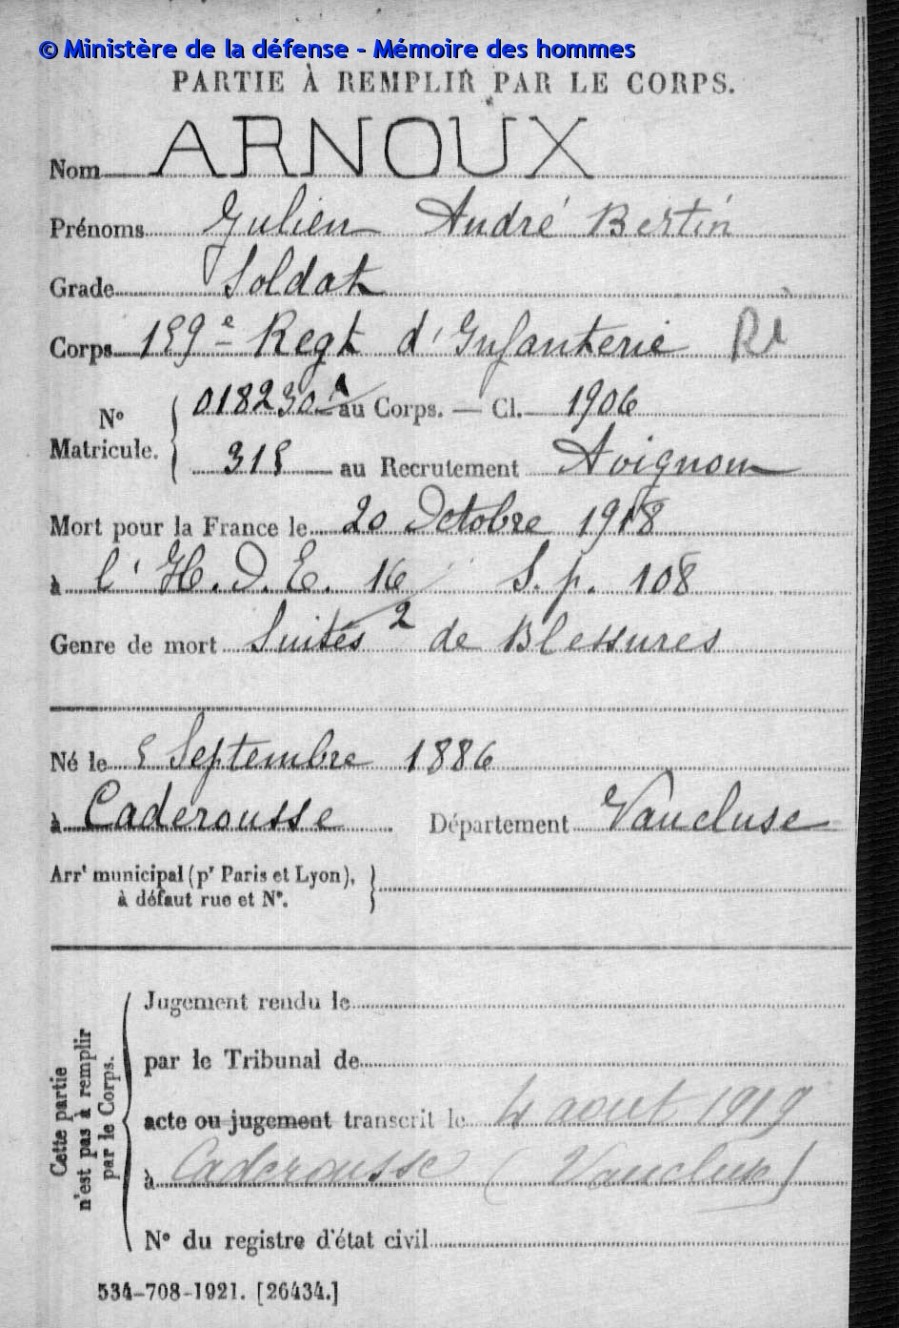 © Ministère de la défense - Mémoire des hommes
PARTIE À REMPLIR PAR LE CORPS.
Nom ARNOUX
Prénoms Julien André Bertin
Grade Soldat
Corps 159e Regt d'Infanterie Ri
No Matricule. 018230 A au Corps. — Cl. 1906
315 au Recrutement Avignon
Mort pour la France le 20 Octobre 1918
à l'H.O.E. 16/2 S.p. 108
Genre de mort Suites de Blessures
Né le 5 Septembre 1886
à Caderousse Département Vaucluse
Arrt municipal (pr Paris et Lyon),
à défaut rue et No.
Cette partie n'est pas à remplir par le Corps.
Jugement rendu le
par le Tribunal de
acte ou jugement transcrit le 4 aout 1919
à Caderousse (Vaucluse)
No du registre d'état civil
534-708-1921. [26434.]